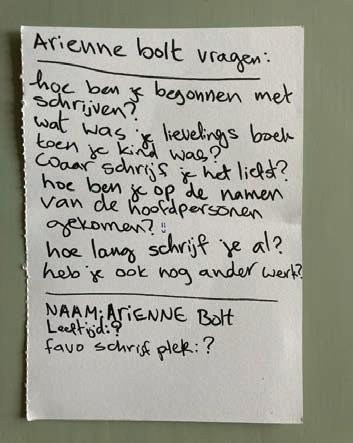 Arienne bolt vragen:
hoe ben je begonnen met
schrijven?
wat was je lievelings boek
toen je kind was?
Waar schrijf je het liefst?
hoe ben je op de namen
van de hoofdpersonen
gekomen?
hoe lang schrijf je al?
heb je ook nog ander werk?
NAAM: ARiENNE Bolt
Leeftijd: ?
favo schrijf plek: ?